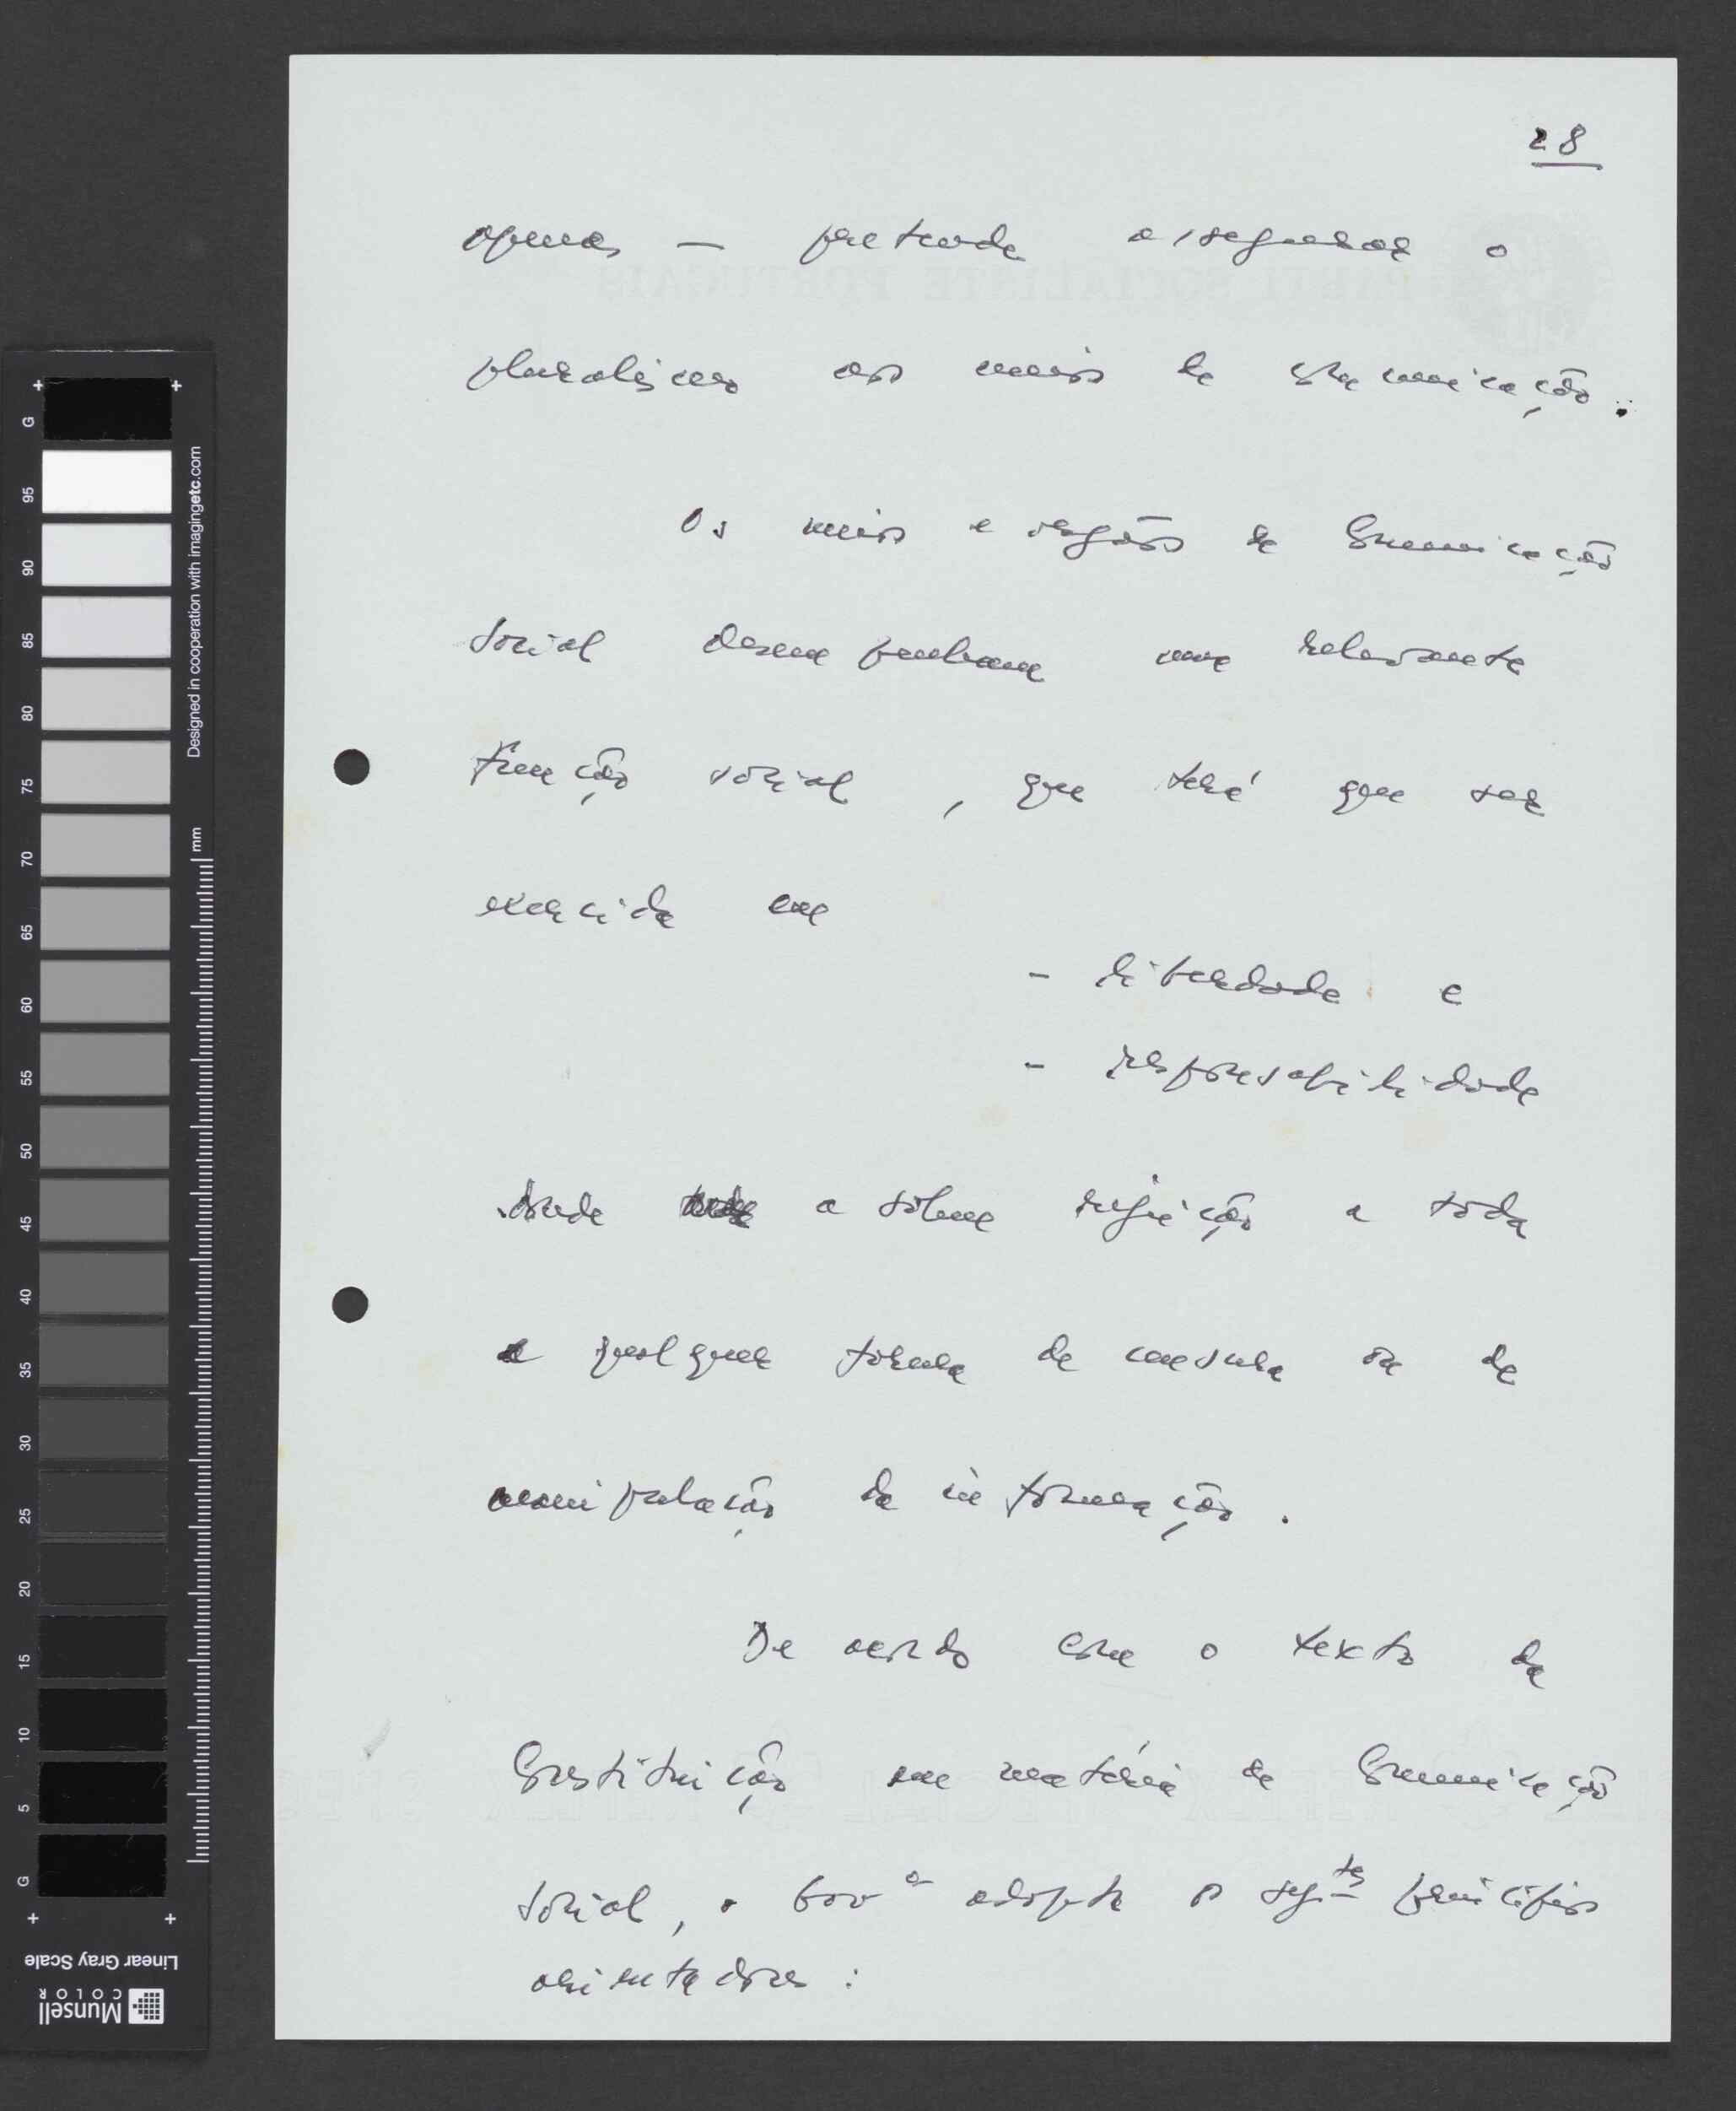 28
apenas — pretende assegurar o
pluralismo nos meios de comunicação.
Os meios e orgãos de Comunicação
Social desempenham uma relevante
função social, que terá que ser
exercida em
- liberdade e
- responsabilidade
donde a solene rejeição a toda
e qualquer forma de censura ou de
manipulação da informação.
De acordo com o texto da
Constituição em matéria de Comunicação
Social, o Gov⁠ᵒ adopta os seg.tes princípios
orientadores:
PARTI SOCIALISTE PORTUGAIS
G 95 90 85 80 75 70 65 60 55 50 45 40 35 30 25 20 15 10 5 G
Designed in cooperation with imagingetc.com
mm
Linear Gray Scale
Munsell
COLOR